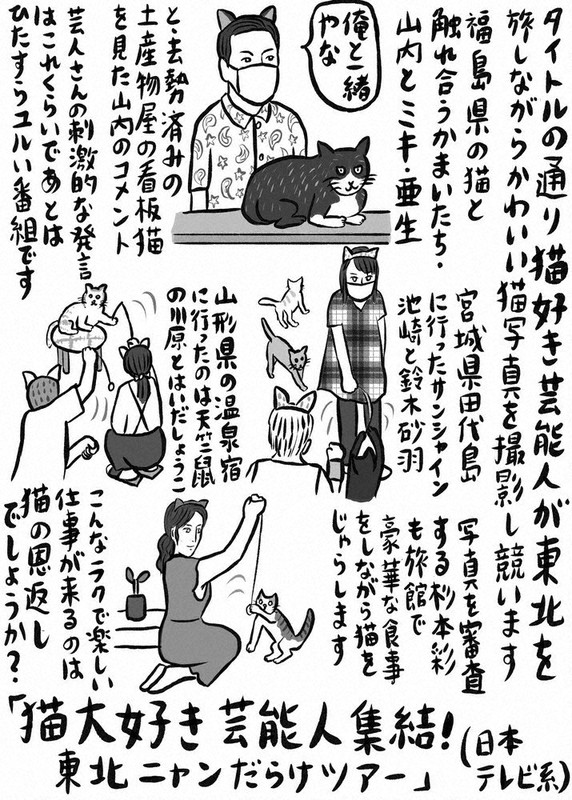 タイトルの通り猫好き芸能人が東北を
旅しながらかわいい猫写真を撮影し競います
福島県の猫と
触れ合うかまいたち・
山内とミキ・亜生
俺と一緒
やな
と、去勢済みの
土産物屋の看板猫
を見た山内のコメント
芸人さんの刺激的な発言
はこれくらいであとは
ひたすらユルい番組です
宮城県田代島
に行ったサンシャイン
池崎と鈴木砂羽
山形県の温泉宿
に行ったのは天竺鼠
の川原とはいだしょうこ
写真を審査
する杉本彩
も旅館で
豪華な食事
をしながら猫を
じゃらします
こんなラクで楽しい
仕事が来るのは
猫の恩返し
でしょうか?
「猫大好き芸能人集結!
東北ニャンだらけツアー」
(日本
テレビ系)